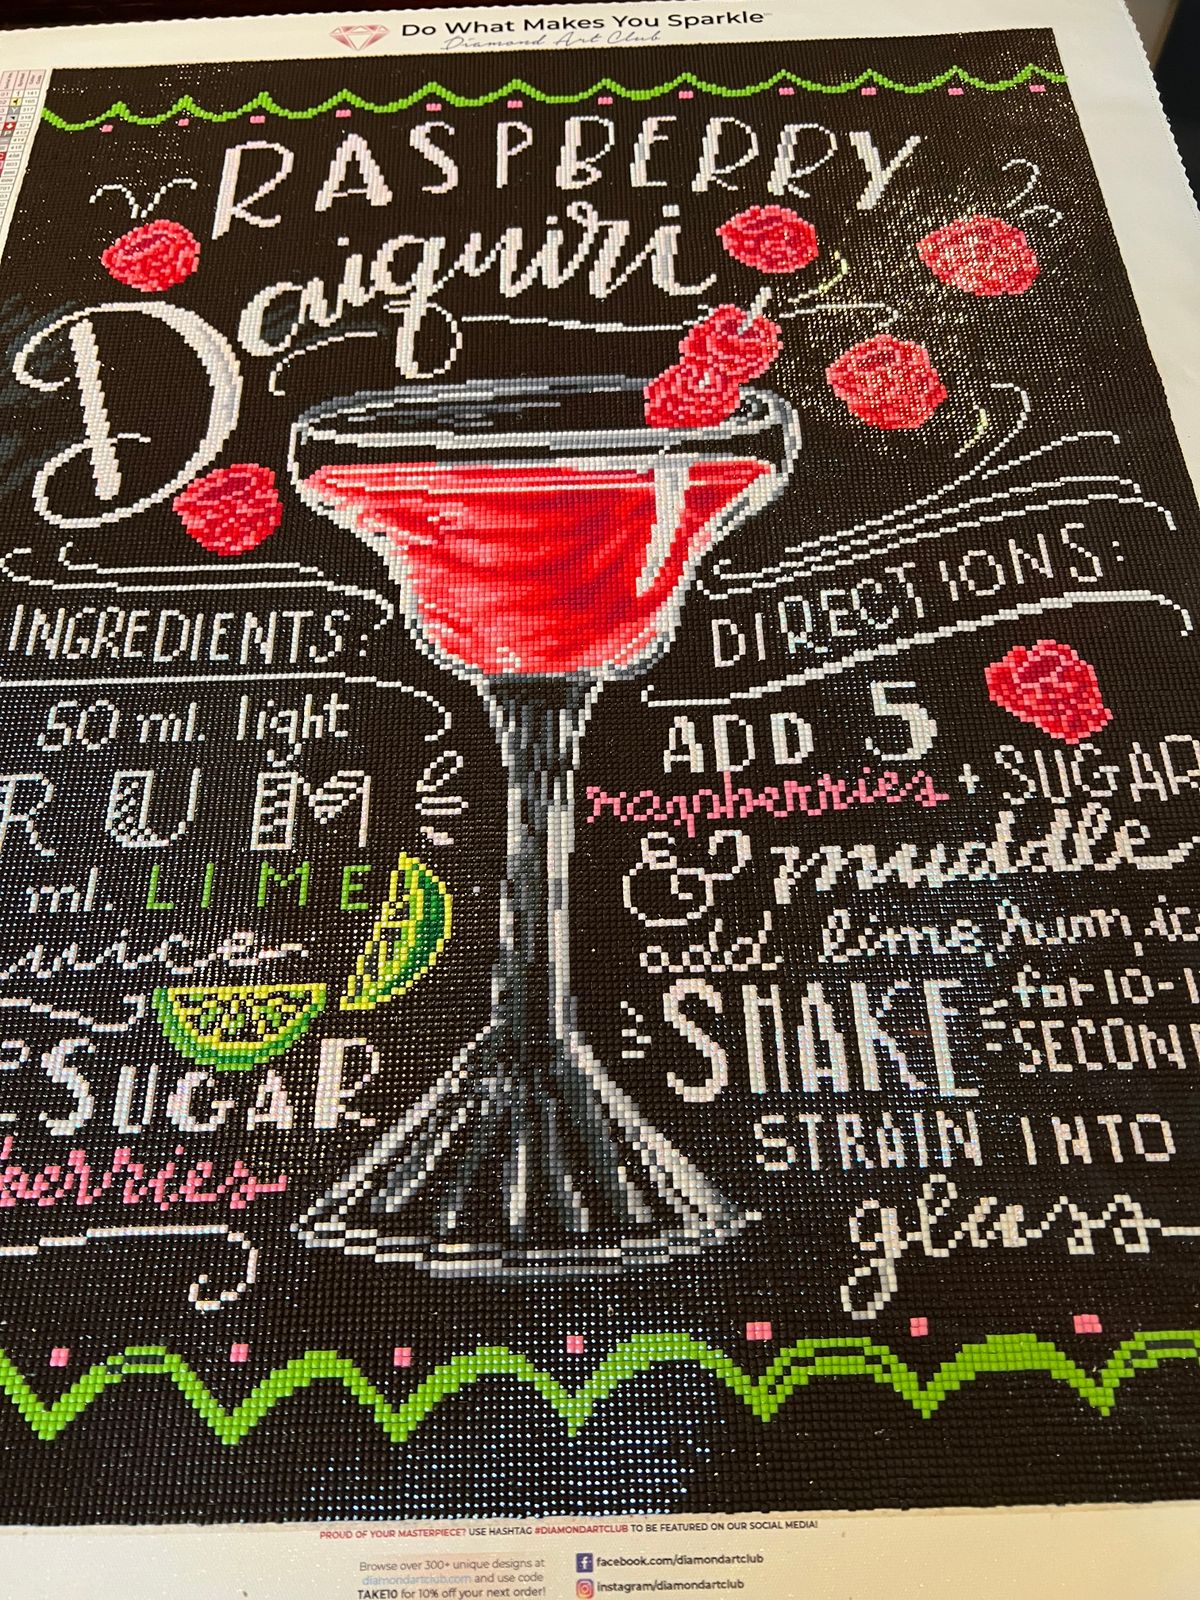 Do What Makes You Sparkle
Diamond Art Club
RASPBERRY
Daiquiri
INGREDIENTS:
50 ml. light
RUM
ml. LIME
SUGAR
berries
DIRECTIONS:
ADD 5
raspberries + SUGAR
& muddle
add lime, rum, ic
SHAKE for 10-1
SECON
STRAIN INTO
glass
PROUD OF YOUR MASTERPIECE? USE HASHTAG #DIAMONDARTCLUB TO BE FEATURED ON OUR SOCIAL MEDIA!
Browse over 300+ unique designs at
diamondartclub.com and use code
TAKE10 for 10% off your next order!
facebook.com/diamondartclub
instagram/diamondartclub